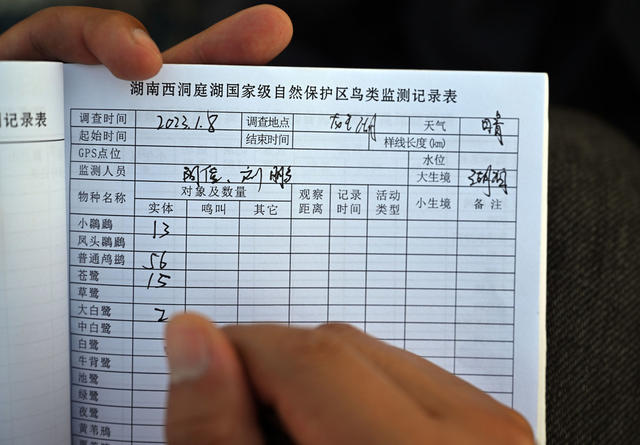 记录表
湖南西洞庭湖国家级自然保护区鸟类监测记录表
调查时间 2023.1.8 调查地点 天气 晴
起始时间 结束时间 样线长度(km)
GPS点位 水位
监测人员 刘鹏 大生境
物种名称 对象及数量 观察距离 记录时间 活动类型 小生境 备注
实体 鸣叫 其它
小䴙䴘 13
凤头䴙䴘
普通鸬鹚 56
苍鹭 15
草鹭
大白鹭 2
中白鹭
白鹭
牛背鹭
池鹭
绿鹭
夜鹭
黄苇鳽